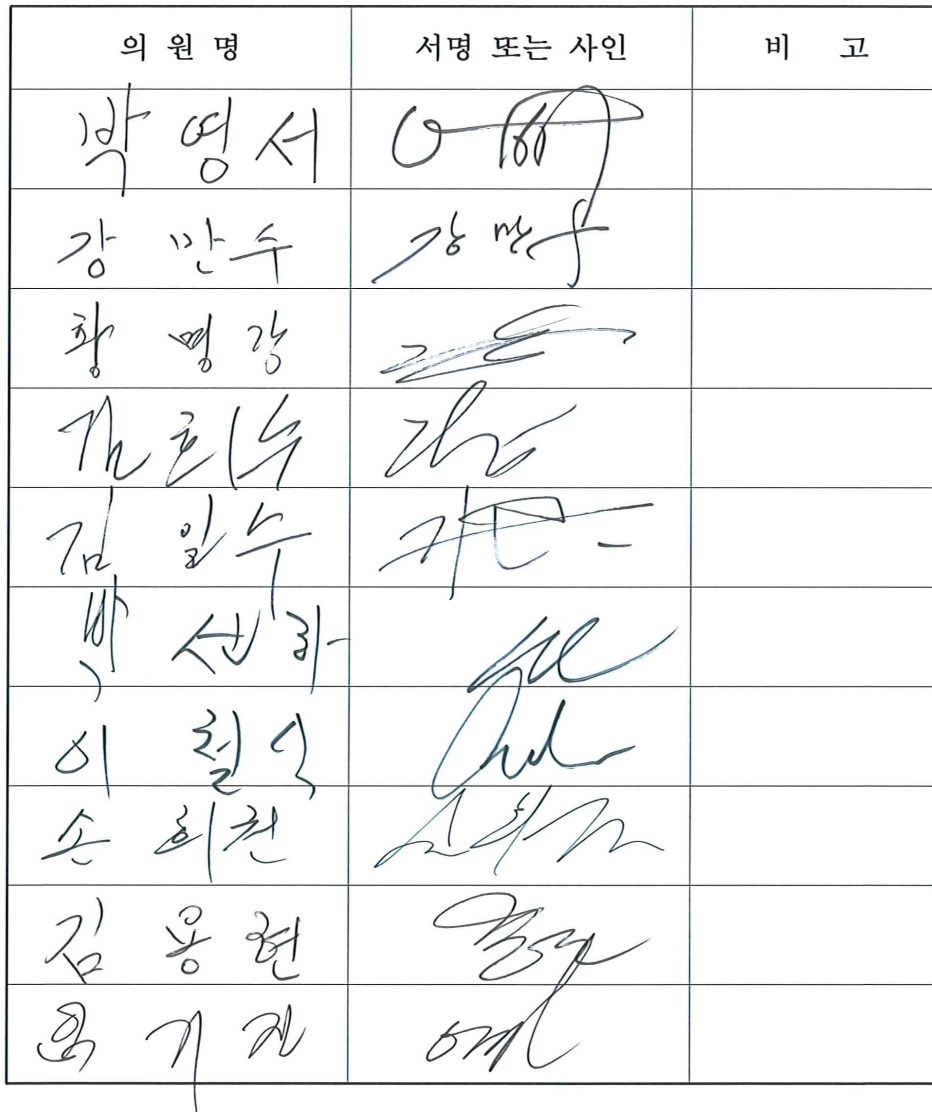 의 원 명 서명 또는 사인 비 고
박 영 서
강 만 수 강 만 수
황 명 강
김 희 수
김 일 수
박 선 하
이 철 식
손 희 권
김 용 현
윤 기 진